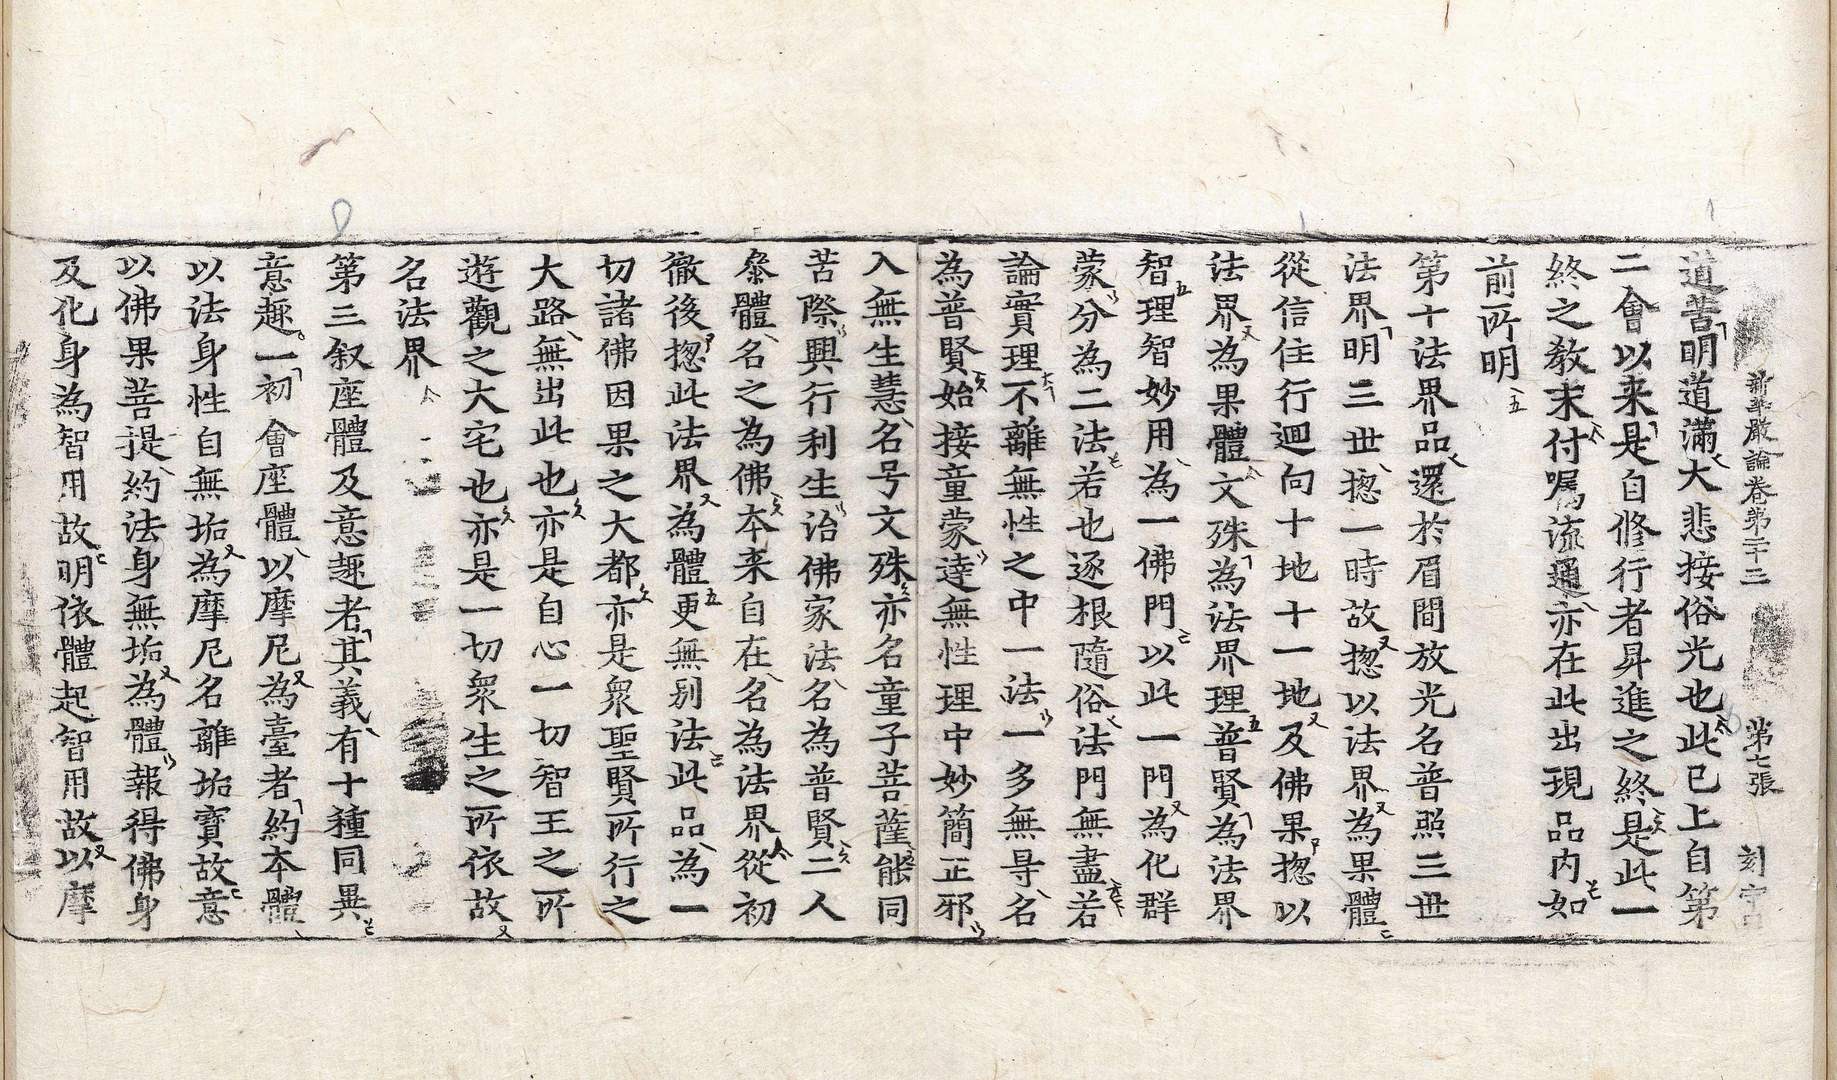 新華嚴論卷第二十三　第七張　刻字
道菩明道滿大悲接俗光也此已上自第
二會以来是自修行者昇進之終是此一
終之教末付嘱流通亦在此出現品内如
前所明
第十法界品還於眉間放光名普照三世
法界明三世揔一時故揔以法界為果體
從信住行迴向十地十一地及佛果揔以
法界為果體文殊為法界理普賢為法界
智理智妙用為一佛門以此一門為化群
蒙分為二法若也逐根隨俗法門無盡若
論實理不離無性之中一法一多無㝵名
為普賢始接童蒙達無性理中妙簡正邪
入無生慧名号文殊亦名童子菩薩能同
苦際興行利生治佛家法名為普賢二人
叅體名之為佛本来自在名為法界從初
徹後揔此法界為體更無别法此品為一
切諸佛因果之大都亦是衆聖賢所行之
大路無出此也亦是自心一切智王之所
遊觀之大宅也亦是一切衆生之所依故
名法界
第三叙座體及意趣者其義有十種同異
意趣一初會座體以摩尼為臺者約本體
以法身性自無垢為摩尼名離垢寶故意
以佛果菩提約法身無垢為體報得佛身
及化身為智用故明依體起智用故以摩